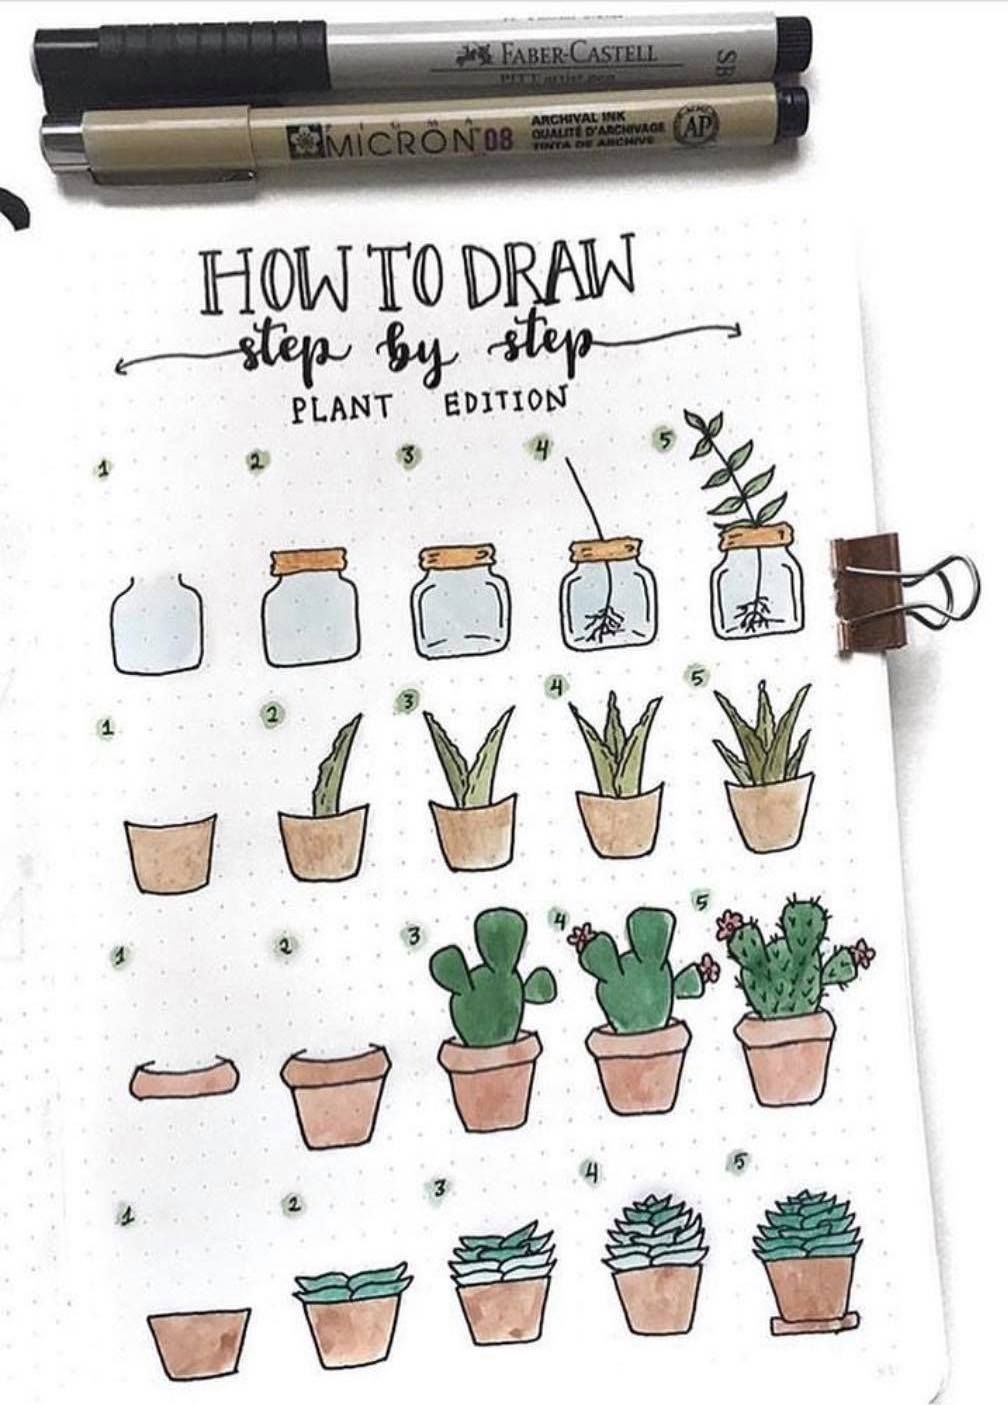 FABER-CASTELL
PITT artist pen
SB
PIGMA
MICRON 08
ARCHIVAL INK
QUALITÉ D'ARCHIVAGE
TINTA DE ARCHIVE
AP
HOW TO DRAW
step by step
PLANT EDITION
1 2 3 4 5
1 2 3 4 5
1 2 3 4 5
1 2 3 4 5